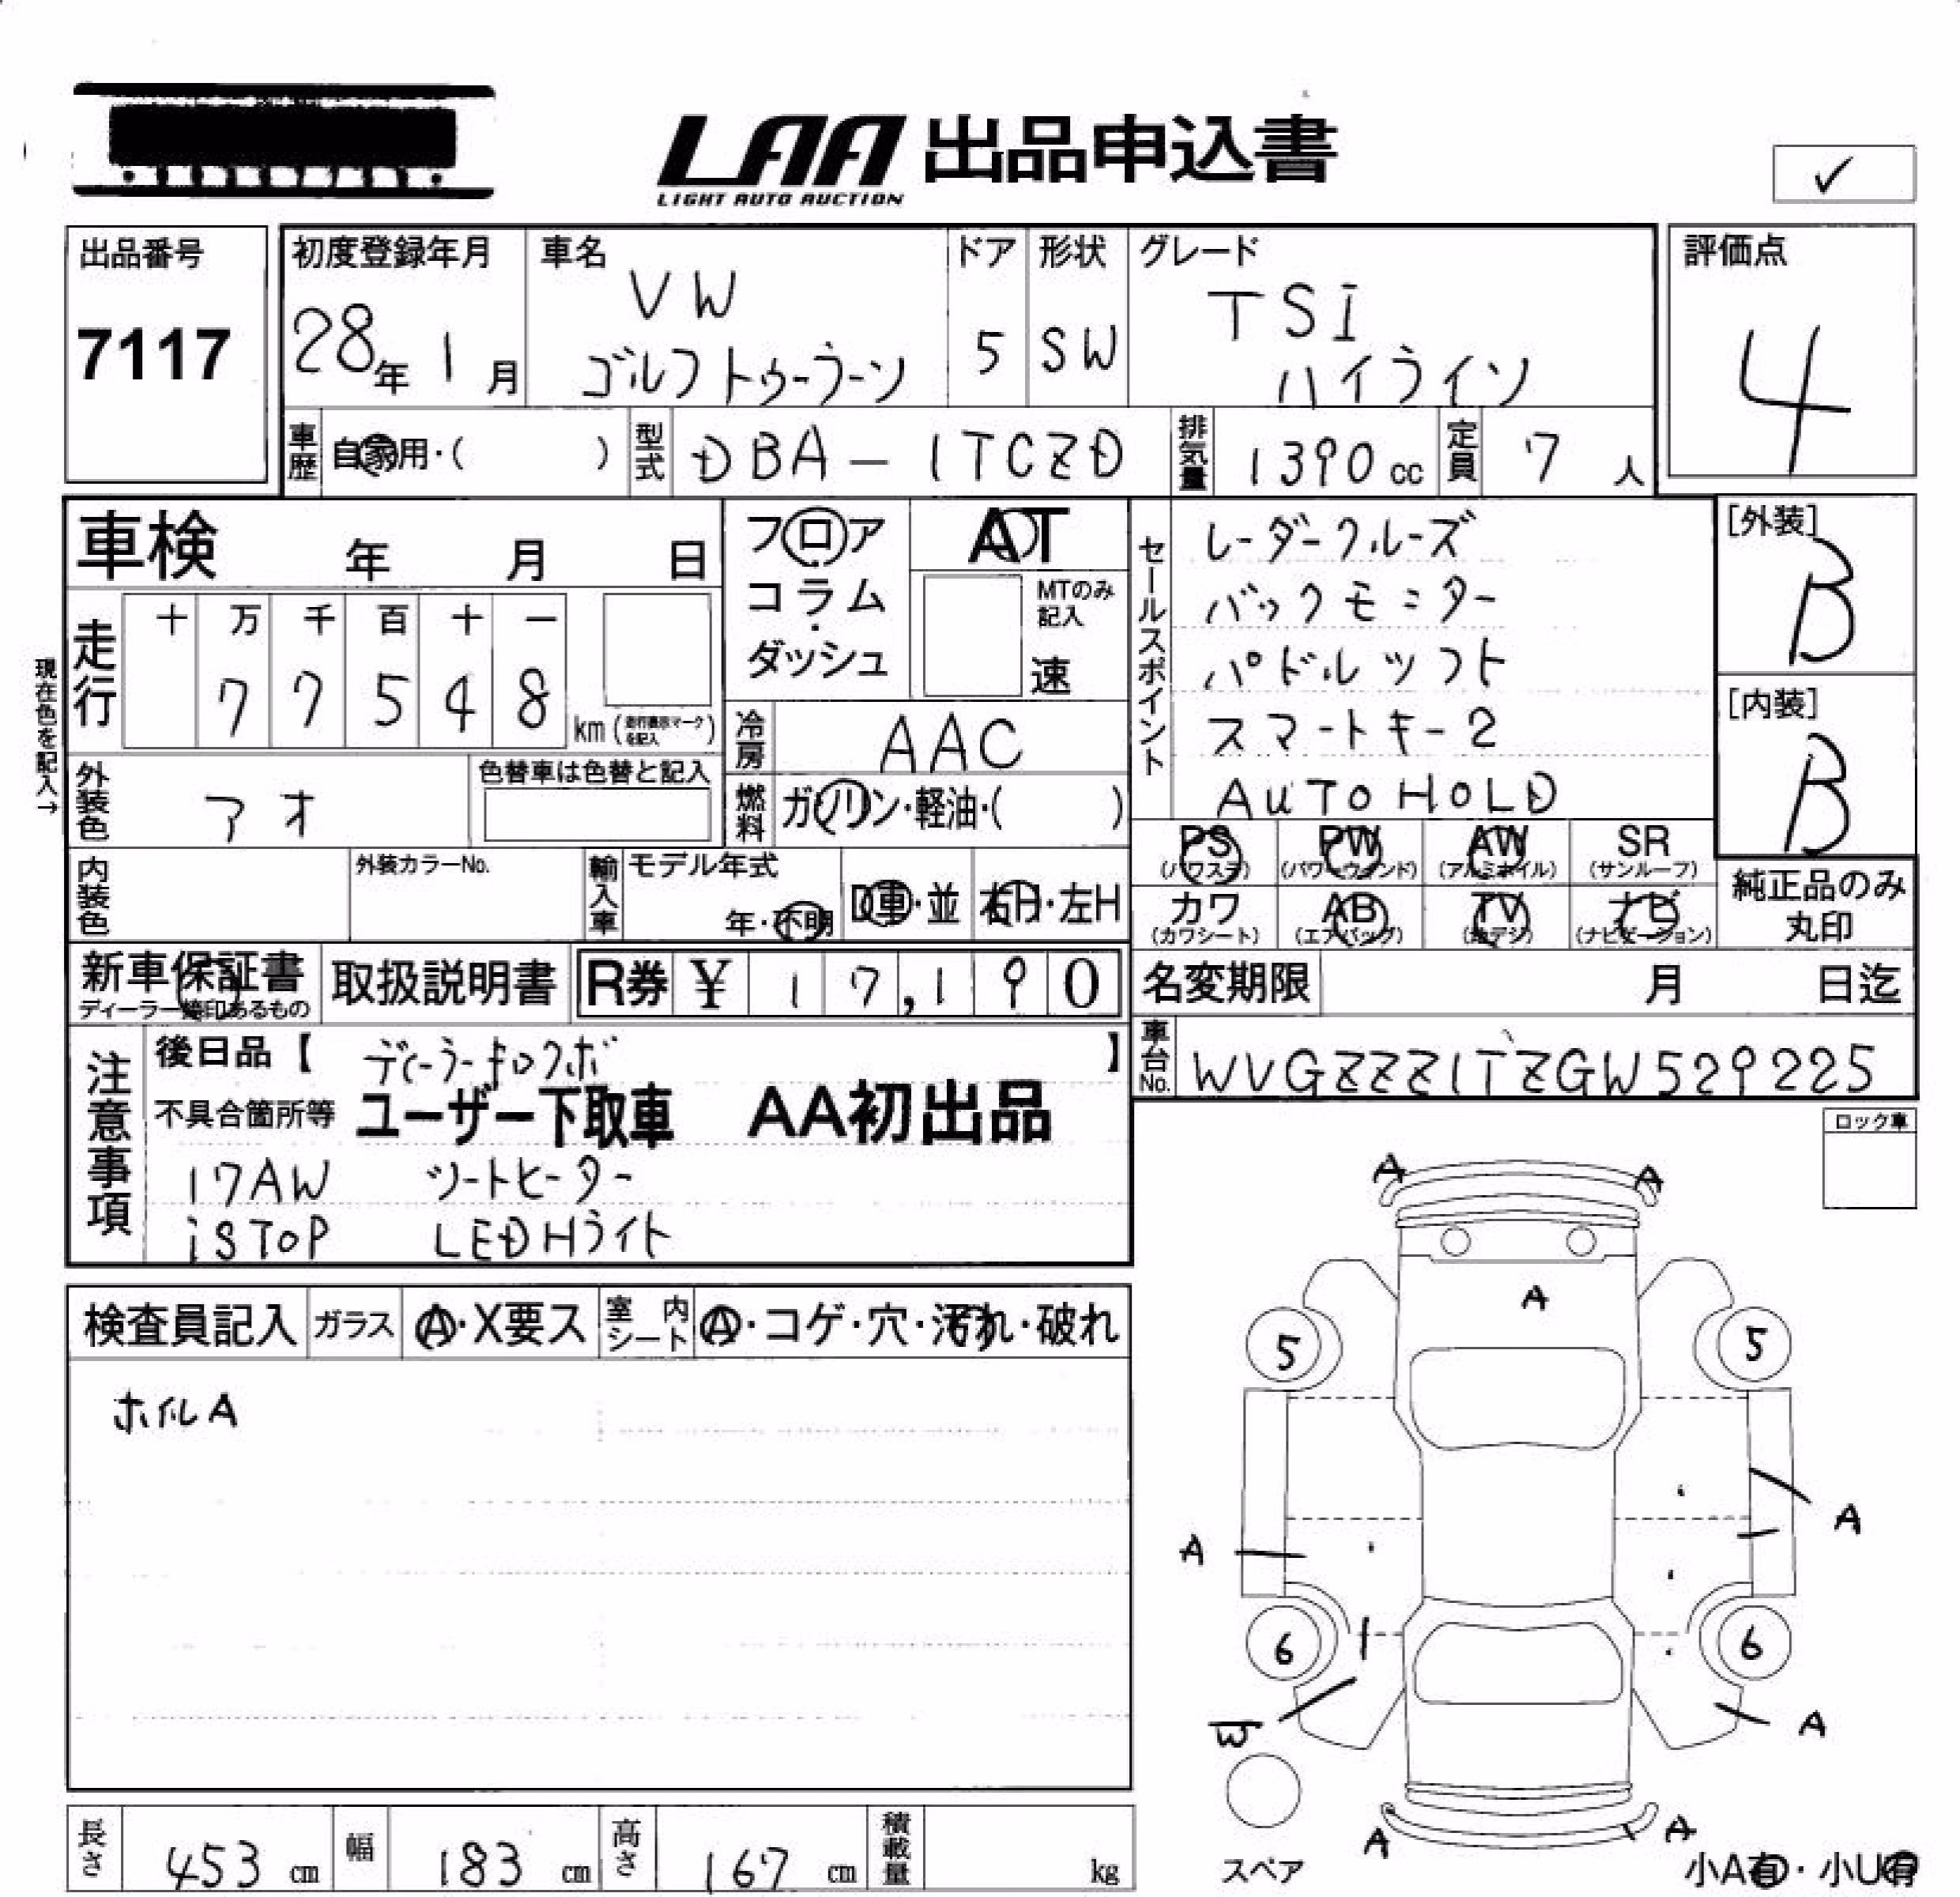 LAA 出品申込書
LIGHT AUTO AUCTION
✓
出品番号
7117
初度登録年月
28年 1月
車名
VW
ゴルフトゥーラーン
ドア
5
形状
SW
グレード
TSI
ハイライン
評価点
4
車歴 自家用・( )
型式 DBA-1TCZD
排気量 1390cc
定員 7人
車検 年 月 日
走行 十 万 千 百 十 一
77548 km (走行表示マークを記入)
現在色を記入→
外装色 アオ
色替車は色替と記入
内装色
外装カラーNo.
フロア
コラム
・
ダッシュ
AT
MTのみ記入
速
冷房 AAC
燃料 ガソリン・軽油・( )
輸入車
モデル年式
年・不明
D車・並
右H・左H
セールスポイント
レーダークルーズ
バックモニター
パドルシフト
スマートキー2
AUTO HOLD
[外装]
B
[内装]
B
PS (パワステ)
PW (パワーウィンド)
AW (アルミホイル)
SR (サンルーフ)
カワ (カワシート)
AB (エアバッグ)
TV (地デジ)
ナビ (ナビゲーション)
純正品のみ
丸印
新車保証書
ディーラー捺印あるもの
取扱説明書
R券 ¥ 17,190
名変期限 月 日迄
車台No. WVGZZZ1TZGW529225
注意事項
後日品【 ディーラーキロクボ 】
不具合箇所等 ユーザー下取車 AA初出品
17AW シートヒーター
iSTOP LEDHライト
ロック車
検査員記入
ガラス A・X要ス
室内シート A・コゲ・穴・汚れ・破れ
ホイルA
A A
A
5 5
A A
6 6
W A
A A
スペア
小A有・小U有
長さ 453 cm
幅 183 cm
高さ 167 cm
積載量 kg